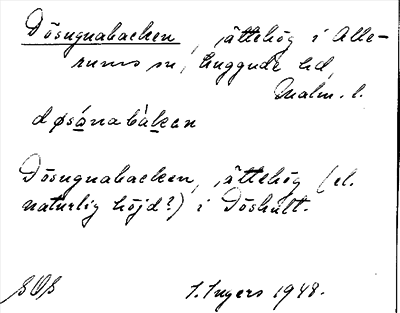 Dösugnabacken, jättehög i Alle-
rums sn, Luggude hd,
Malm. l.
døsánabàkan
Dösugnabacken, jättehög (el.
naturlig höjd?) i Döshult.
I. Ingers 1948.